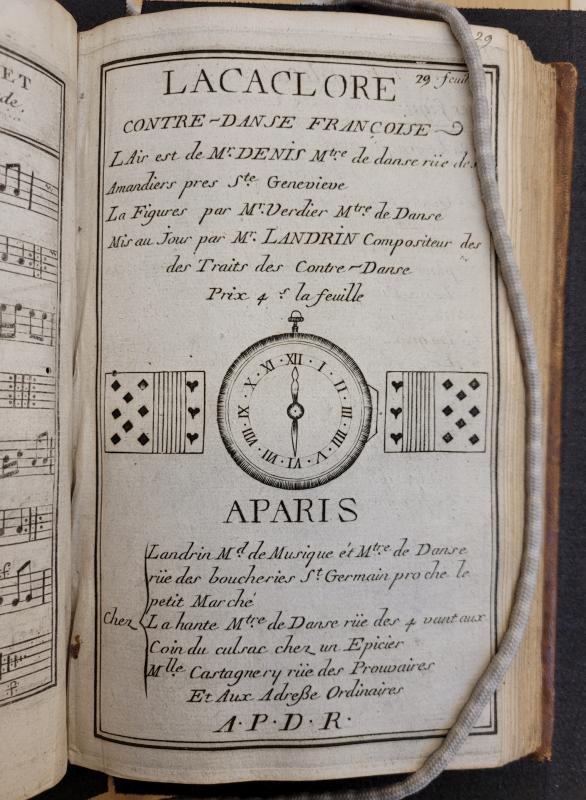 29
29.e feuil
LACACLORE
CONTRE-DANSE FRANÇOISE
L'Air est de Mr. DENIS Mtre de danse rüe des
Amandiers pres Ste Genevieve
La Figures par Mr. Verdier Mtre de Danse
Mis au Jour par Mr. LANDRIN Compositeur des
des Traits des Contre-Danse
Prix 4 s la feuille
XII I II III IIII V VI VII VIII IX X XI
APARIS
Chez
Landrin Md. de Musique ét Mtre de Danse
rüe des boucheries St. Germain proche le
petit Marché
La hante Mtre de Danse rüe des 4 vantaux
Coin du culsac chez un Epicier
Mlle Castagnery rüe des Prouvaires
Et Aux Adreße Ordinaires
A·P·D·R·
ET
de